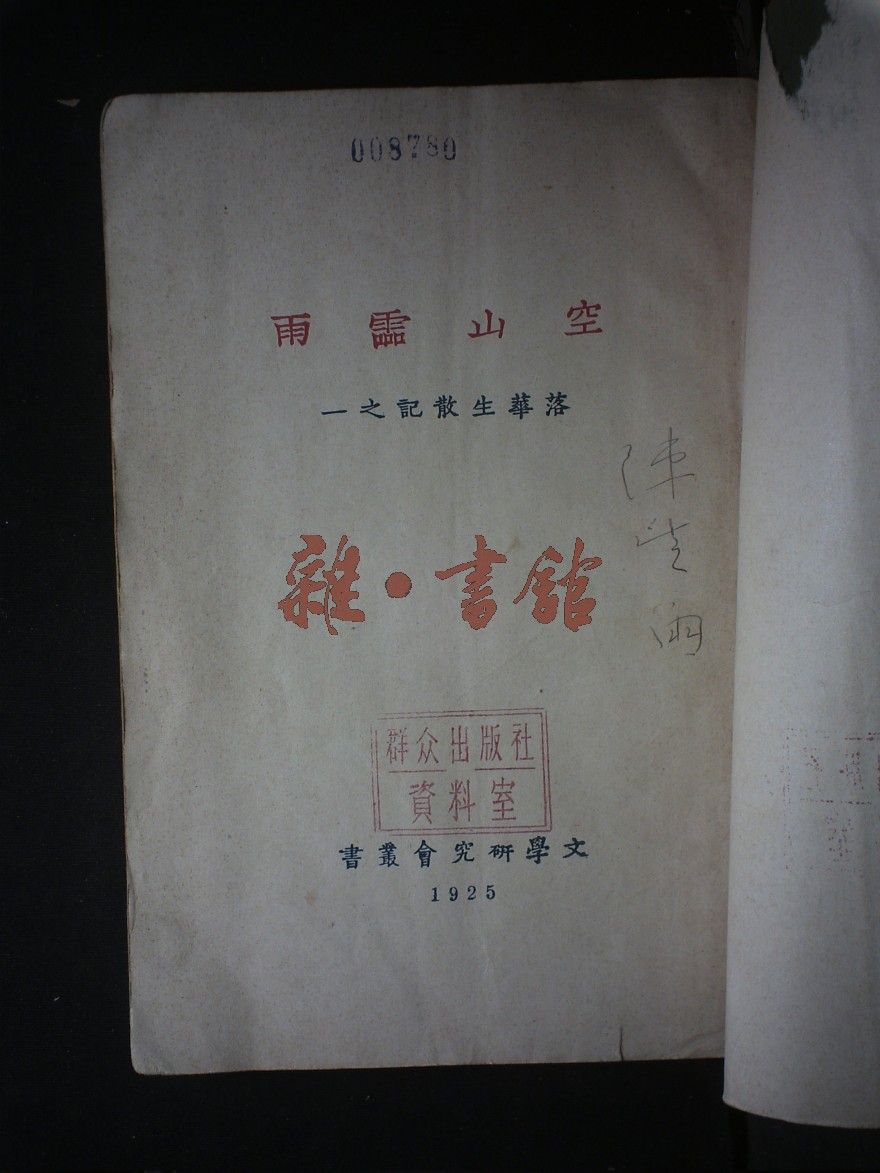 008780
空山靈雨
落華生散記之一
雜·書館
群众出版社
資料室
文學研究會叢書
1925